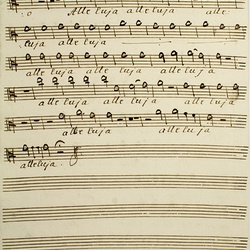 :o Alleluja alle
luja alleluja
alleluja alleluja alleluja
alleluja alleluja alle
alleluja alleluja
alleluja.